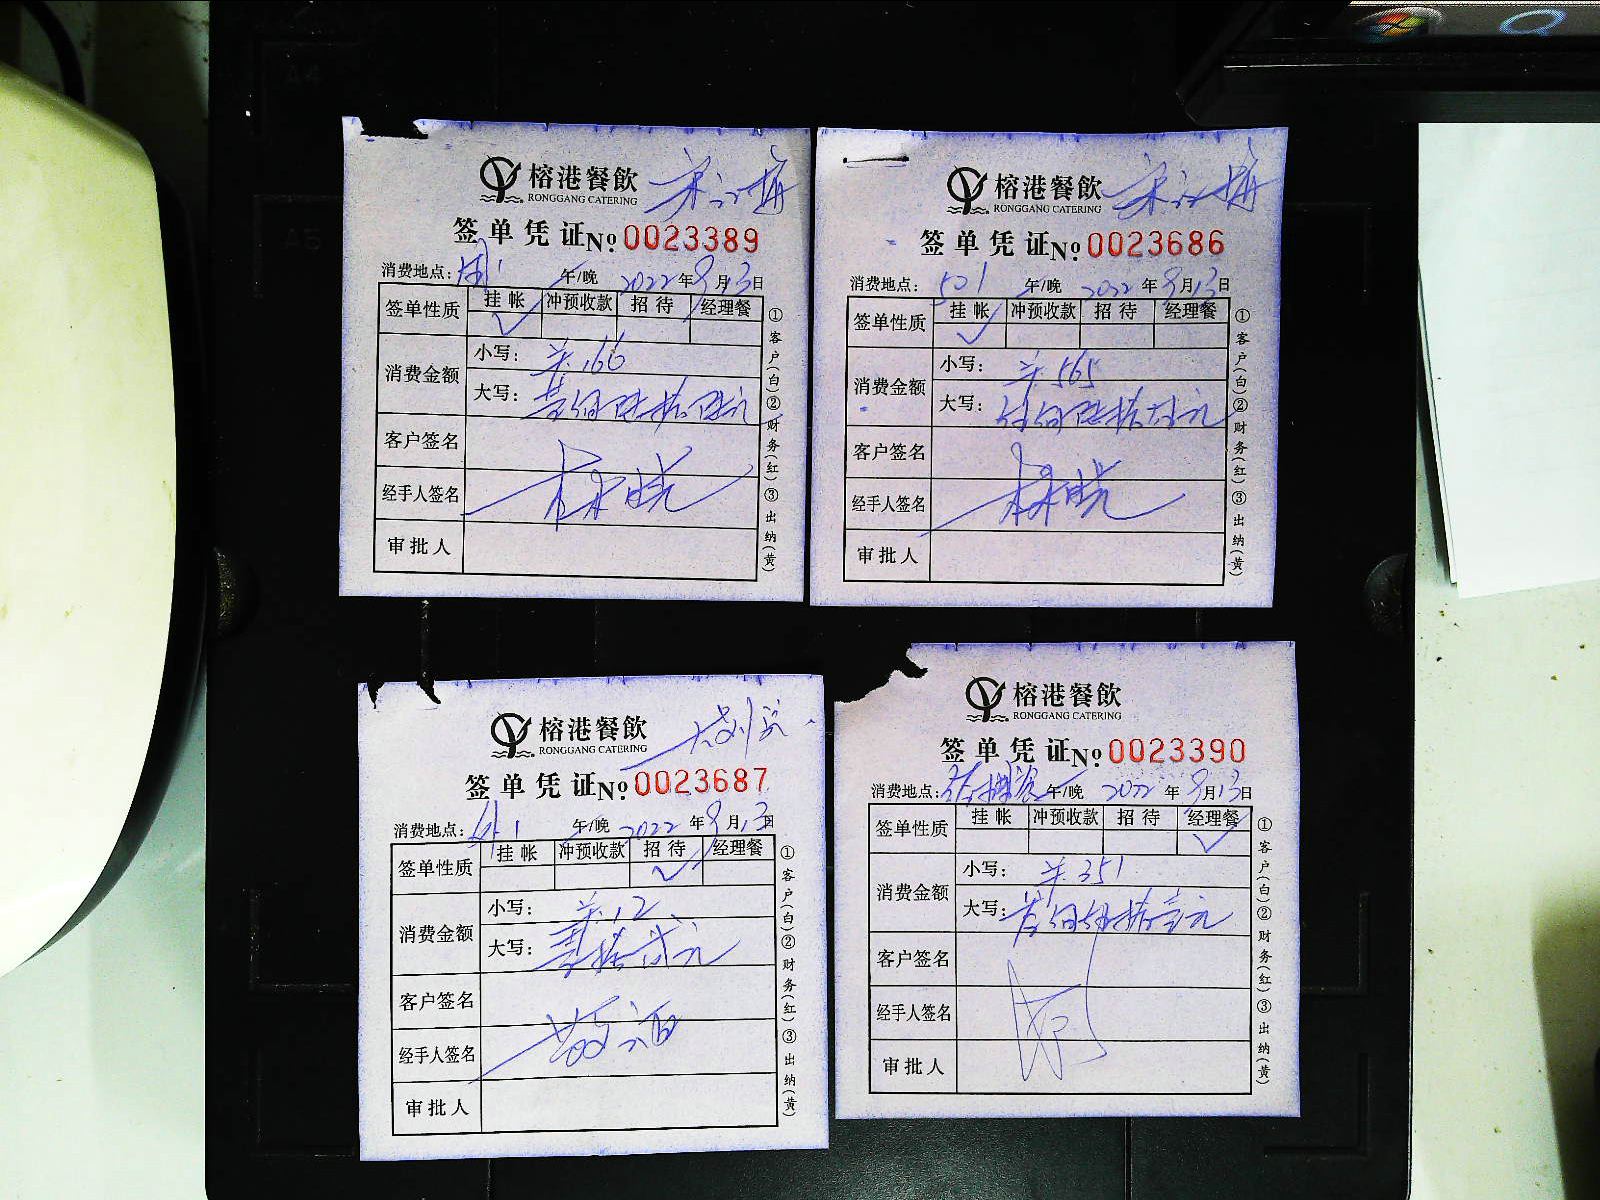 榕港餐飲
RONGGANG CATERING
签单凭证№ 0023389
消费地点: 午/晚 2022年9月13日
签单性质 挂帐 冲预收款 招待 经理餐
✓
消费金额
小写: 166
大写: 壹佰陆拾陆元
客户签名
经手人签名 林晓
审批人
①客户(白)②财务(红)③出纳(黄)
榕港餐飲
RONGGANG CATERING
签单凭证№ 0023686
消费地点: 501 午/晚 2022年9月13日
签单性质 挂帐 冲预收款 招待 经理餐
✓
消费金额
小写: 565
大写: 伍佰陆拾伍元
客户签名
经手人签名 林晓
审批人
①客户(白)②财务(红)③出纳(黄)
榕港餐飲
RONGGANG CATERING
签单凭证№ 0023687
消费地点: 午/晚 2022年9月13日
签单性质 挂帐 冲预收款 招待 经理餐
✓
消费金额
小写: 12
大写: 壹拾贰元
客户签名
经手人签名
审批人
①客户(白)②财务(红)③出纳(黄)
榕港餐飲
RONGGANG CATERING
签单凭证№ 0023390
消费地点: 午/晚 2022年9月13日
签单性质 挂帐 冲预收款 招待 经理餐
✓
消费金额
小写: 351
大写: 佰伍拾壹元
客户签名
经手人签名
审批人
①客户(白)②财务(红)③出纳(黄)